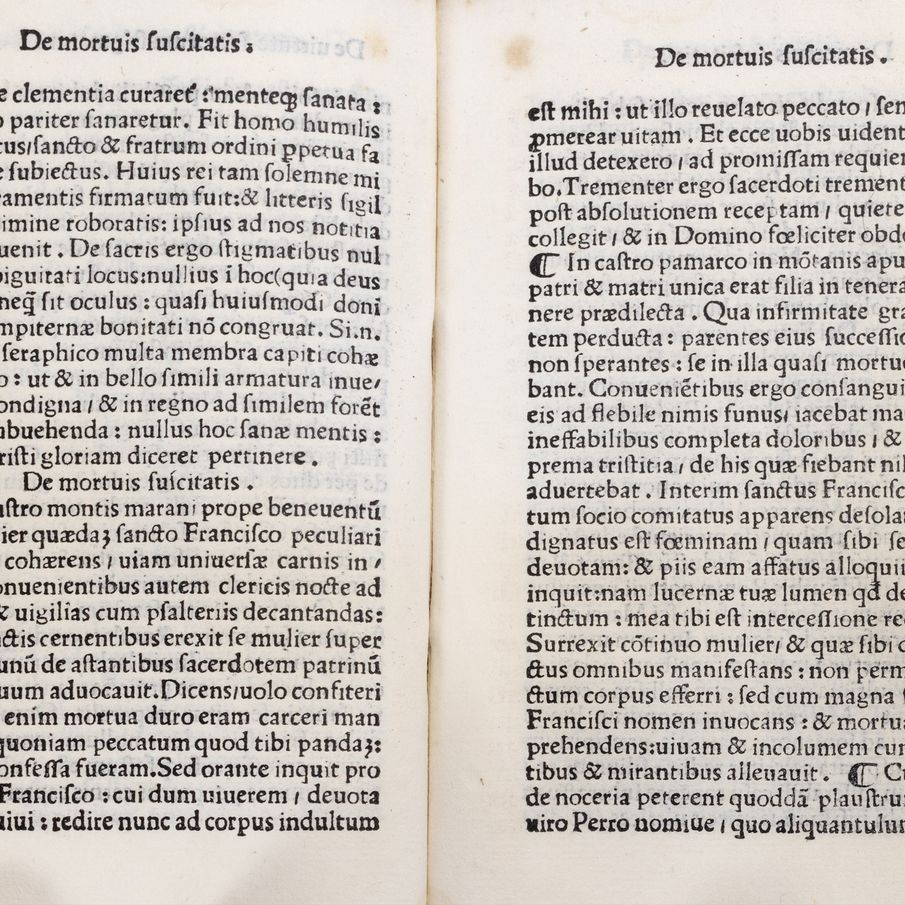 De mortuis ſuſcitatis.
e clementia curaret̃ : menteqꝫ ſanata :
o pariter ſanaretur. Fit homo humilis
tus/ſancto & fratrum ordini ꝑpetua fa
e ſubiectus. Huius rei tam ſolemne mi
ramentis firmatum fuit:& litteris ſigil
imine roboratis: ipſius ad nos notitia
uenit. De ſacris ergo ſtigmatibus nul
biguitati locus:nullius ĩ hoc(quia deus
neq̃ ſit oculus : quaſi huiuſmodi doni
mpiternæ bonitati nõ congruat. Si.n.
ſeraphico multa membra capiti cohæ
o : ut & in bello ſimili armatura inue/
ondigna / & in regno ad ſimilem forẽt
nbuehenda : nullus hoc ſanæ mentis :
riſti gloriam diceret pertinere.
De mortuis ſuſcitatis.
aſtro montis marani prope beneuentũ
ier quædaꝫ ſancto Franciſco peculiari
cohærens / uiam uniuerſæ carnis in /
onuenientibus autem clericis nocte ad
& uigilias cum pſalteriis decantandas:
nctis cernentibus erexit ſe mulier ſuper
unũ de aſtantibus ſacerdotem patrinũ
uum aduocauit.Dicens/uolo confiteri
enim mortua duro eram carceri man
quoniam peccatum quod tibi pandaꝫ:
onfeſſa fueram.Sed orante inquit pro
Franciſco : cui dum uiuerem / deuota
uiui : redire nunc ad corpus indultum
De mortuis ſuſcitatis.
eſt mihi : ut illo reuelato peccato / ſem
ꝓmerear uitam. Et ecce uobis uident
illud detexero / ad promiſſam requiem
bo.Trementer ergo ſacerdoti trement
poſt abſolutionem receptam / quiete
collegit / & in Domino fœliciter obdo
¶ In caſtro pamarco in mõtanis apu
patri & matri unica erat filia in tenera
nere prædilecta. Qua infirmitate gra
tem perducta : parentes eius ſucceſſio
non ſperantes : ſe in illa quaſi mortuo
bant. Conueniẽtibus ergo conſangui
eis ad flebile nimis funus/ iacebat ma
ineffabilibus completa doloribus / &
prema triſtitia / de his quæ fiebant nil
aduertebat. Interim ſanctus Franciſc
tum ſocio comitatus apparens deſola
dignatus eſt fœminam / quam ſibi ſe
deuotam: & piis eam affatus alloquii
inquit:nam lucernæ tuæ lumen qd de
tinctum : mea tibi eſt interceſſione red
Surrexit cõtinuo mulier/ & quæ ſibi d
ctus omnibus manifeſtans : non perm
ctum corpus efferri : ſed cum magna f
Franciſci nomen inuocans : & mortua
prehendens:uiuam & incolumem cun
tibus & mirantibus alleuauit. ¶ Cu
de noceria peterent quoddã plauſtru
uiro Perro nomine / quo aliquantulum